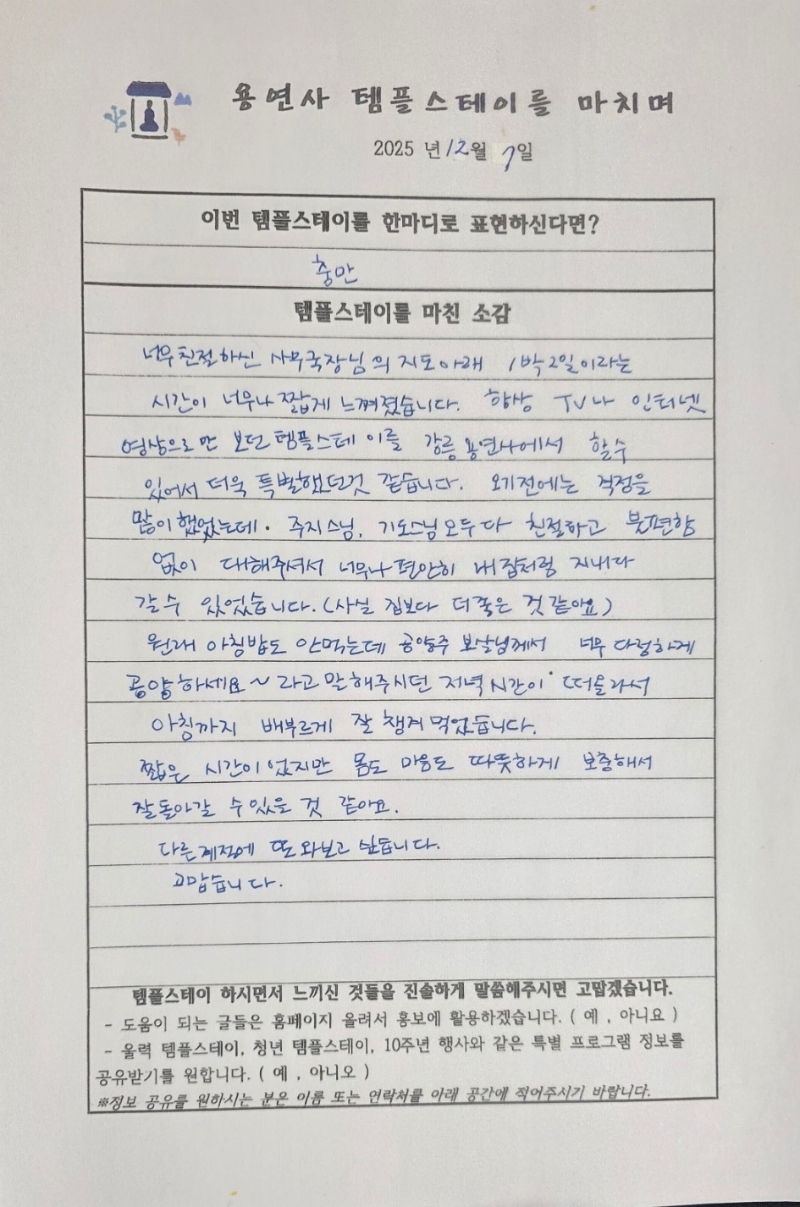 용연사 템플스테이를 마치며
2025 년 12월 7일
이번 템플스테이를 한마디로 표현하신다면?
충만
템플스테이를 마친 소감
너무 친절하신 사무국장님의 지도아래 1박 2일이라는
시간이 너무나 짧게 느껴졌습니다. 항상 TV나 인터넷
영상으로만 보던 템플스테이를 강릉 용연사에서 할수
있어서 더욱 특별했던것 같습니다. 오기전에는 걱정을
많이 했었는데. 주지스님, 기도스님 모두 다 친절하고 불편함
없이 대해주셔서 너무나 편안히 내 집처럼 지내다
갈 수 있었습니다. (사실 집보다 더 좋은 것 같아요)
원래 아침밥도 안먹는데 공양주 보살님께서 너무 다정하게
공양하세요~ 라고 말해주시던 저녁시간이 떠올라서
아침까지 배부르게 잘 챙겨 먹었습니다.
짧은 시간이었지만 몸도 마음도 따뜻하게 보충해서
잘 돌아갈 수 있을 것 같아요.
다른 계절에 또 와보고 싶습니다.
고맙습니다.
템플스테이 하시면서 느끼신 것들을 진솔하게 말씀해주시면 고맙겠습니다.
- 도움이 되는 글들은 홈페이지 올려서 홍보에 활용하겠습니다. ( 예 , 아니요 )
- 울력 템플스테이, 청년 템플스테이, 10주년 행사와 같은 특별 프로그램 정보를
공유받기를 원합니다. ( 예 , 아니오 )
※정보 공유를 원하시는 분은 이름 또는 연락처를 아래 공간에 적어주시기 바랍니다.